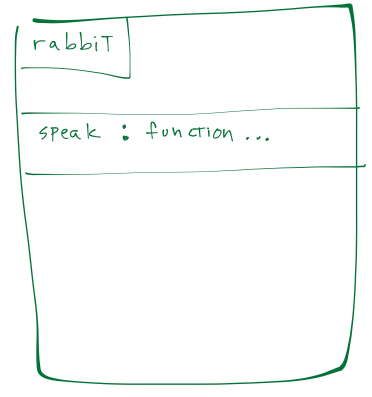 rabbiT
speak : function ...